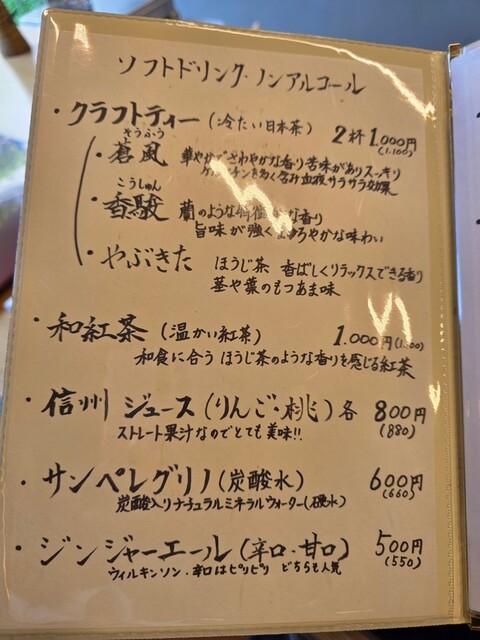 ソフトドリンク・ノンアルコール
・クラフトティー(冷たい日本茶) 2杯 1.000円
(1.100)
そうふう
・蒼風 華やかでさわやかな香り苦味がありスッキリ
を多く含み血液サラサラ効果
こうしゅん
・香駿 蘭のような な香り
旨味が強くまろやかな味わい
・やぶきた ほうじ茶 香ばしくリラックスできる香り
茎や葉のもつあま味
・和紅茶(温かい紅茶) 1.000円(1.100)
和食に合う ほうじ茶のような香りを感じる紅茶
・信州 ジュース(りんご・桃)各 800円
ストレート果汁なのでとても美味!! (880)
・サンペレグリノ(炭酸水) 600円
炭酸入りナチュラルミネラルウォーター(硬水) (660)
・ジンジャーエール(辛口・甘口) 500円
ウィルキンソン・辛口はピリピリ どちらも人気 (550)